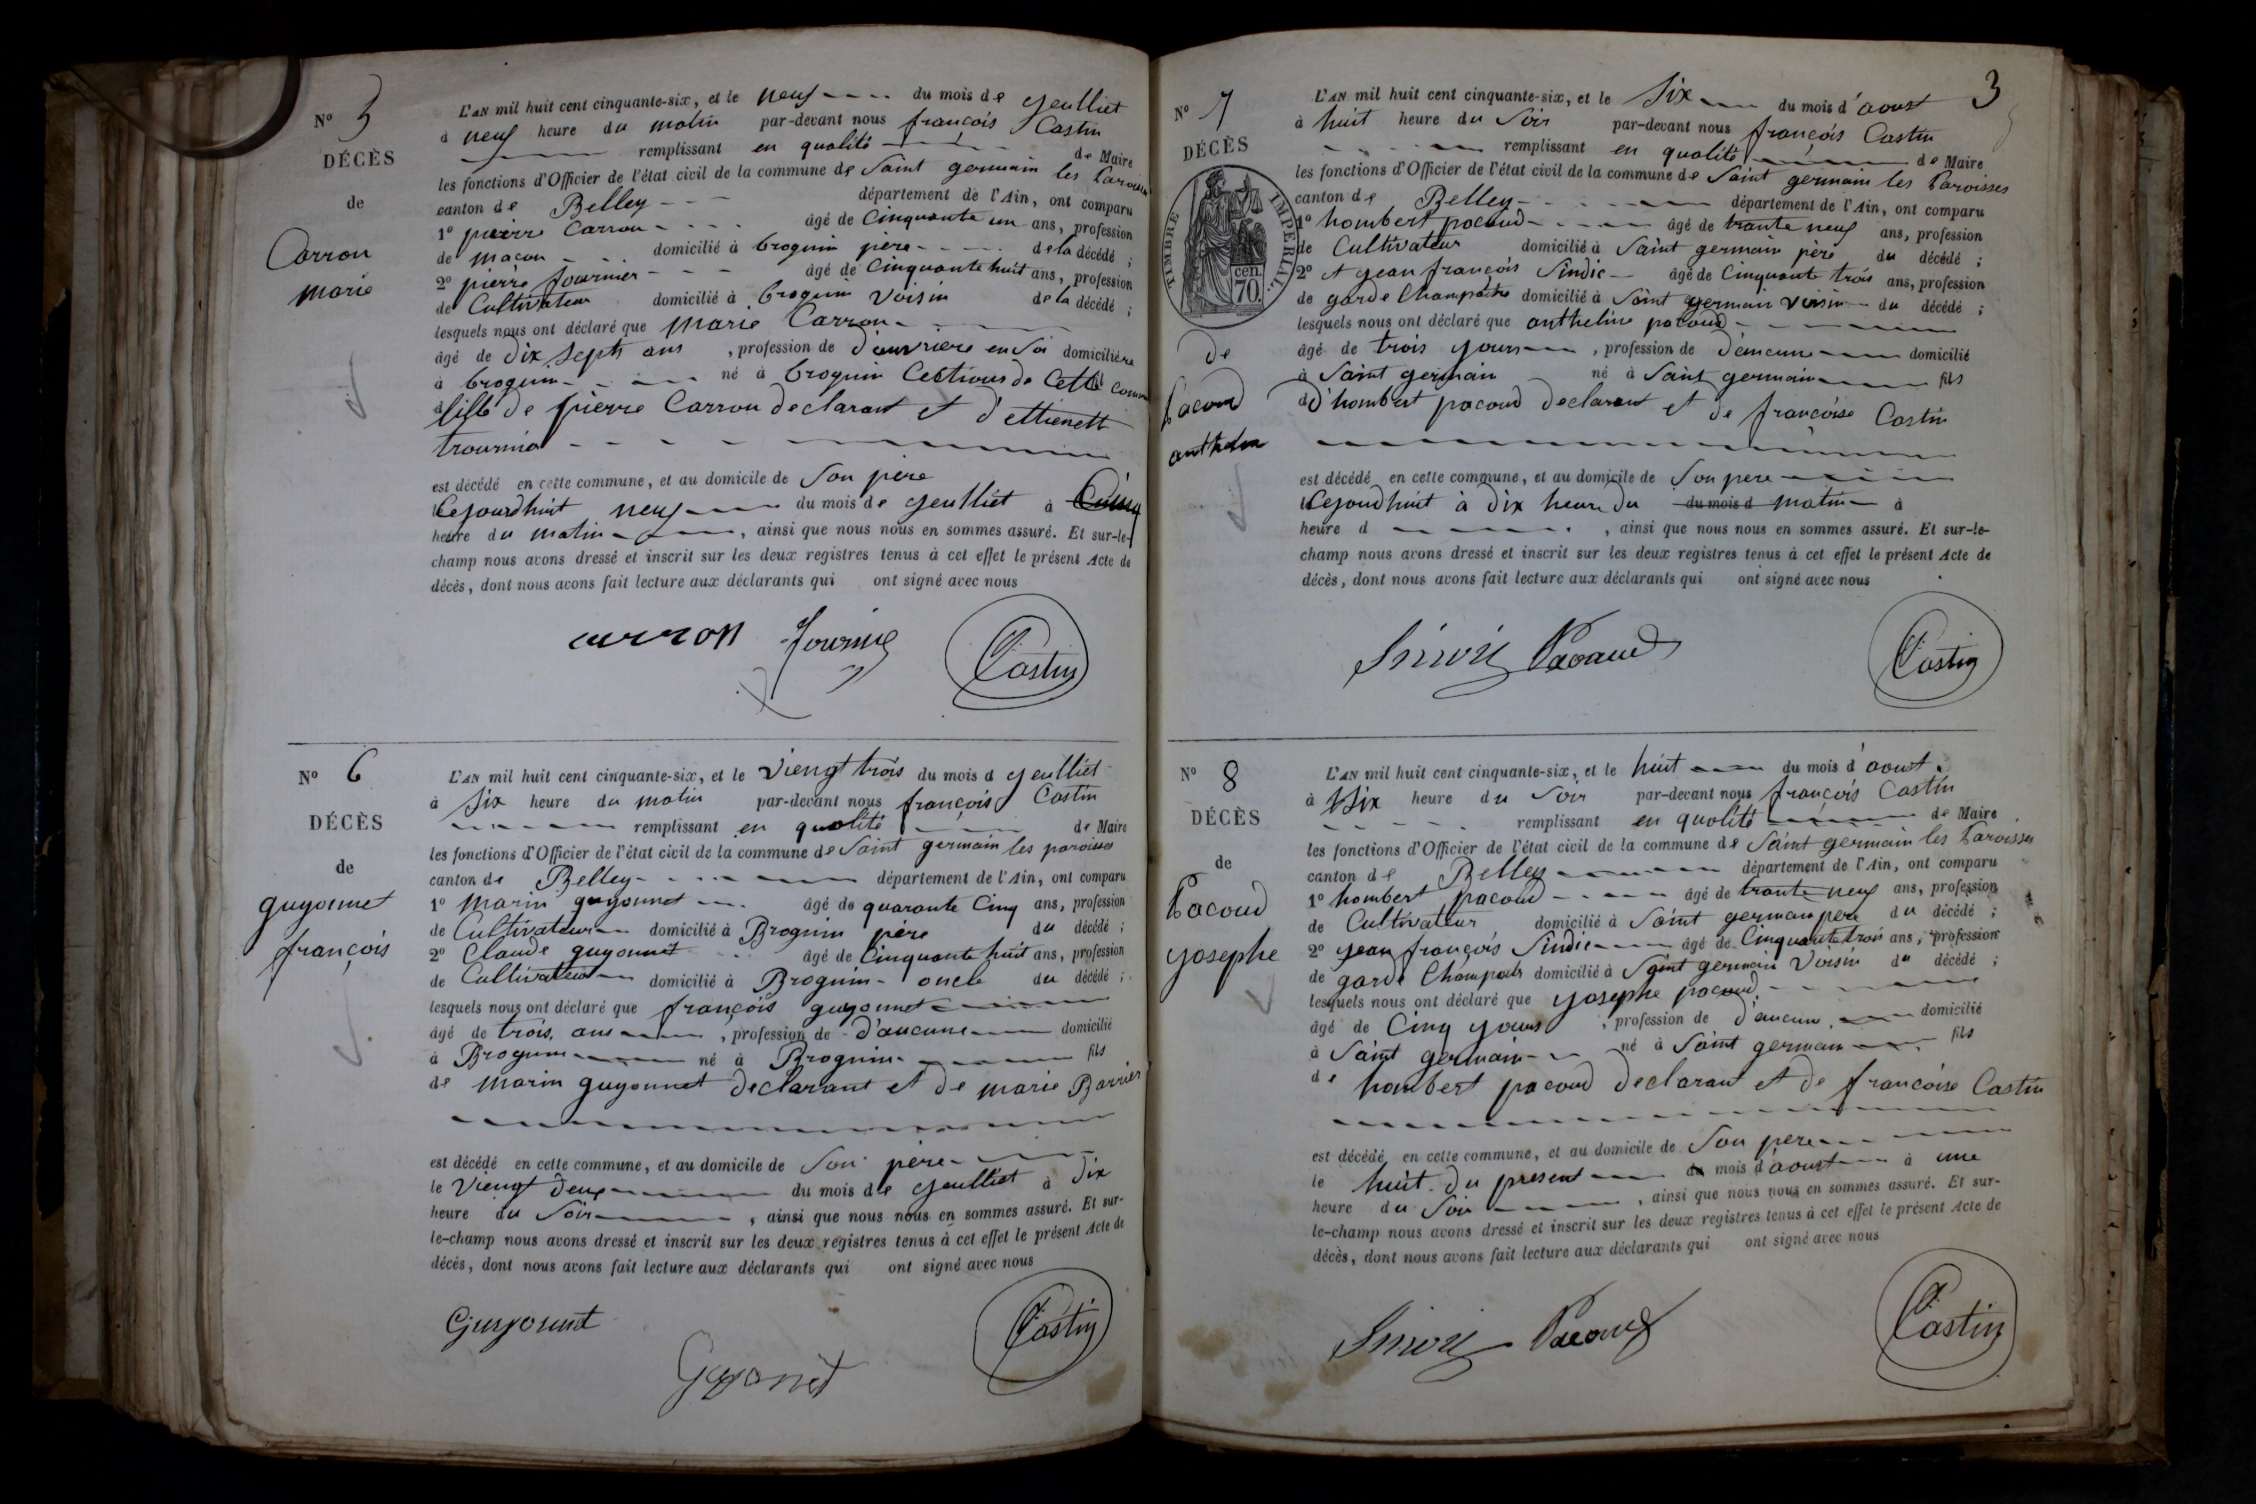 N° 5
DÉCÈS
de
Carron
marie
L'AN mil huit cent cinquante-six, et le neuf du mois de yeulliet
à neuf heure du matin par-devant nous françois Castin
remplissant en qualité de Maire
les fonctions d'Officier de l'état civil de la commune de Saint germain les Paroisses
canton de Belley département de l'Ain, ont comparu
1° pierre Carron âgé de Cinquante un ans, profession
de maçon domicilié à brognin père de la décédé ;
2° pierre fournier âgé de Cinquante huit ans, profession
de Cultivateur domicilié à brognin Voisin de la décédé ;
lesquels nous ont déclaré que marie Carron
âgé de dix septs ans , profession de d'ouvriere en soi domicilié
à brognin né à brognin Cections de Cette comm
fille de pierre Carron declarant et d'ettienett
est décédé en cette commune, et au domicile de Son père
Cejourdhuit neuf du mois de yeulliet à Cinq
heure du matin , ainsi que nous nous en sommes assuré. Et sur-le-
champ nous avons dressé et inscrit sur les deux registres tenus à cet effet le présent Acte de
décès, dont nous avons fait lecture aux déclarants qui ont signé avec nous
carron fournier Castin
N° 6
DÉCÈS
de
guyonnet
françois
L'AN mil huit cent cinquante-six, et le Viengt trois du mois d yeulliet
à Six heure du matin par-devant nous françois Castin
remplissant en qualité de Maire
les fonctions d'Officier de l'état civil de la commune de Saint germain les paroisses
canton de Belley département de l'Ain, ont comparu
1° marin guyonnet âgé de quarante Cinq ans, profession
de Cultivateur domicilié à Brognin père du décédé ;
2° Claude guyonnet âgé de Cinquante huit ans, profession
de Cultivateur domicilié à Brognin oncle du décédé ;
lesquels nous ont déclaré que françois guyonnet
âgé de trois ans , profession de d'aucune domicilié
à Brognin né à Brognin fils
de marin guyonnet declarant et de marie Barrier
est décédé en cette commune, et au domicile de Son père
le Viengt deux du mois de yeulliet à dix
heure du Soir , ainsi que nous nous en sommes assuré. Et sur-
le-champ nous avons dressé et inscrit sur les deux registres tenus à cet effet le présent Acte de
décès, dont nous avons fait lecture aux déclarants qui ont signé avec nous
Guyounet Guyonnet Castin
3
N° 7
DÉCÈS
TIMBRE IMPERIAL.
cen.
70.
de
Pacoud
anthelm
L'AN mil huit cent cinquante-six, et le Six du mois d'aoust
à huit heure du Soir par-devant nous françois Castin
remplissant en qualité de Maire
les fonctions d'Officier de l'état civil de la commune de Saint germain les Paroisses
canton de Belley département de l'Ain, ont comparu
1° hombert pacoud âgé de trante neuf ans, profession
de Cultivateur domicilié à Saint germain père du décédé ;
2° et yean françois Sindic âgé de Cinquante trois ans, profession
de garde Champaitre domicilié à Saint germain Voisin du décédé ;
lesquels nous ont déclaré que antheline pacoud
âgé de trois yours , profession de d'aucune domicilié
à Saint germain né à Saint germain fils
d'hombert pacoud declarant et de françoise Castin
est décédé en cette commune, et au domicile de Son pere
Cejourdhuit à dix heure du du mois d matin à
heure d , ainsi que nous nous en sommes assuré. Et sur-le-
champ nous avons dressé et inscrit sur les deux registres tenus à cet effet le présent Acte de
décès, dont nous avons fait lecture aux déclarants qui ont signé avec nous
Pacoud Castin
N° 8
DÉCÈS
de
Pacoud
yosephe
L'AN mil huit cent cinquante-six, et le huit du mois d'aoust
à Six heure du Soir par-devant nous françois Castin
remplissant en qualité de Maire
les fonctions d'Officier de l'état civil de la commune de Saint germain les Paroisses
canton de Belley département de l'Ain, ont comparu
1° hombert pacoud âgé de trante neuf ans, profession
de Cultivateur domicilié à Saint germain pere du décédé ;
2° yean françois Sindic âgé de Cinquante trois ans, profession
de garde Champaitr domicilié à Saint germain Voisin du décédé ;
lesquels nous ont déclaré que yosephe pacoud
âgé de Cinq yours , profession de d'aucun domicilié
à Saint germain né à Saint germain fils
de hombert pacoud declarant et de françoise Castin
est décédé en cette commune, et au domicile de Son pere
le huit du present du mois d'aoust à une
heure du Soir , ainsi que nous nous en sommes assuré. Et sur-
le-champ nous avons dressé et inscrit sur les deux registres tenus à cet effet le présent Acte de
décès, dont nous avons fait lecture aux déclarants qui ont signé avec nous
Pacoud Castin